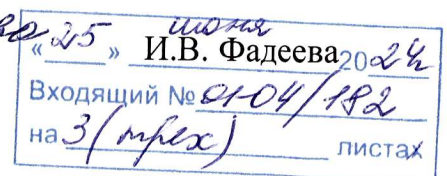 «25» июня
И.В. Фадеева 2024г
Входящий № 01-04/182
на 3 (трех) листах